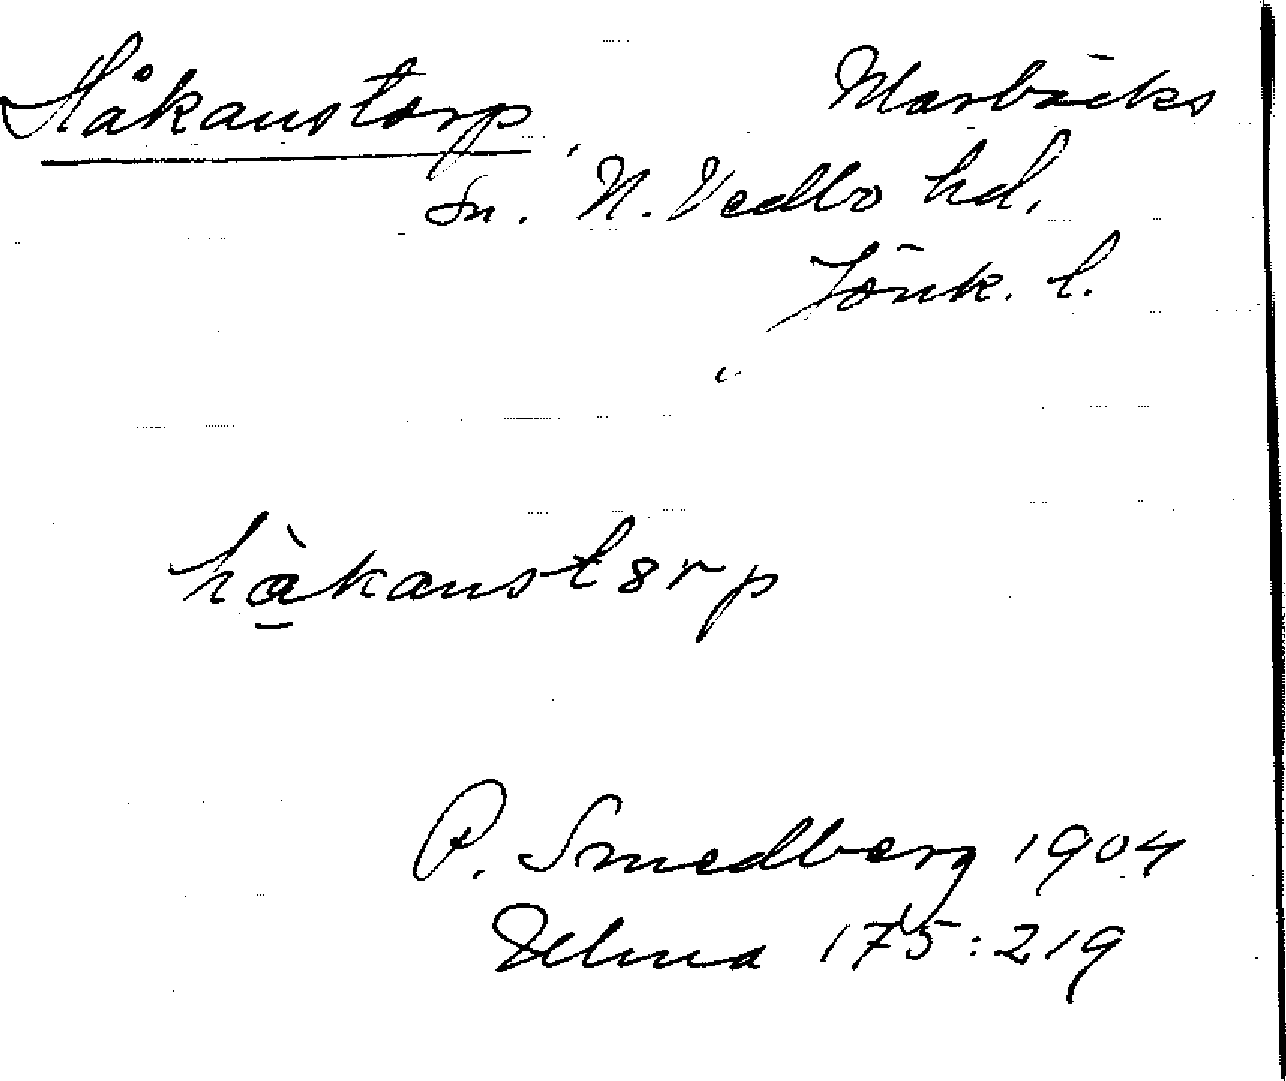 Håkanstorp Marbäcks
Sn. N. Vedbo hd.
Jönk. l.
hà̱kanstorp
P. Smedberg 1904
Ulma 175:219